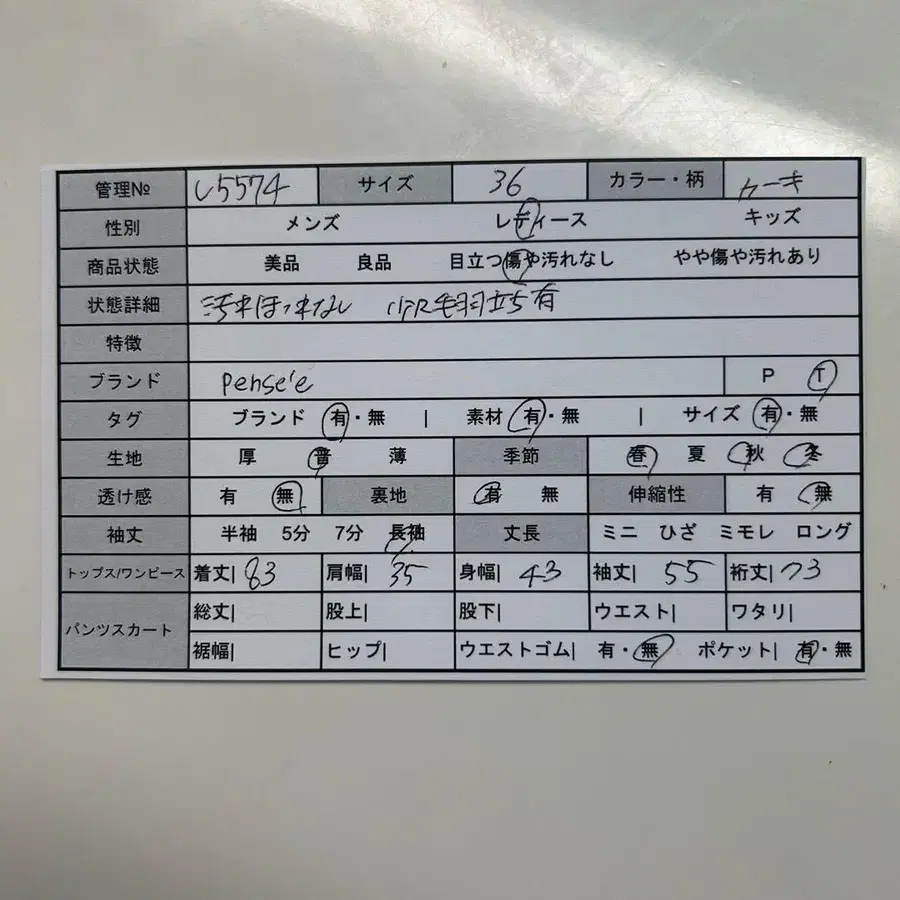 管理№ し5574 サイズ 36 カラー・柄 カーキ
性別 メンズ レディース キッズ
商品状態 美品 良品 目立つ傷や汚れなし やや傷や汚れあり
状態詳細 汚れほつれなし 少し毛羽立ち有
特徴
ブランド Pense'e P T
タグ ブランド 有・無 | 素材 有・無 | サイズ 有・無
生地 厚 普 薄 季節 春 夏 秋 冬
透け感 有 無 裏地 有 無 伸縮性 有 無
袖丈 半袖 5分 7分 長袖 丈長 ミニ ひざ ミモレ ロング
トップス/ワンピース 着丈| 83 肩幅| 35 身幅| 43 袖丈| 55 裄丈| 73
パンツスカート 総丈| 股上| 股下| ウエスト| ワタリ|
裾幅| ヒップ| ウエストゴム| 有・無 ポケット| 有・無